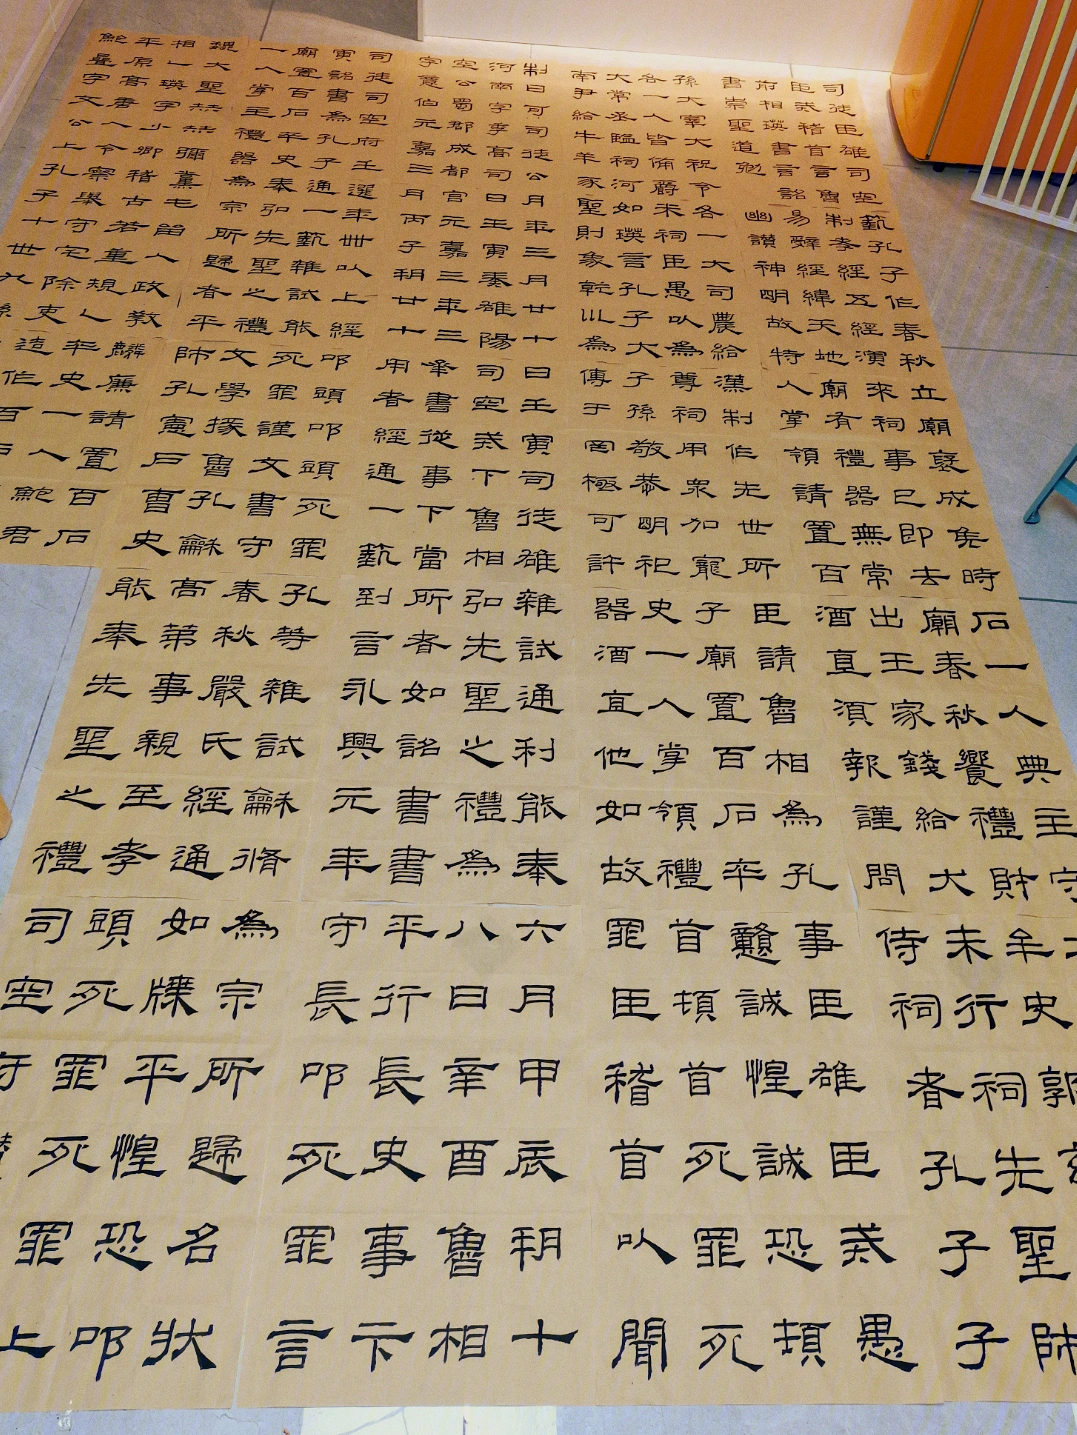 司徒臣雄司空藝孔子作春秋立廟褒成侯時石一人典主守
臣戒稽首言魯制孝經五經演來祠事已即去廟春秋饗禮財牟史郭玄
府相瑛書言詔易辭經緯天地廟有禮器無常出王家錢給犬未行祠先聖師
書崇聖道勉幽讚神明故特人掌領請置百酒直須報謹問侍祠者孔子子
孫大宰大祝令各一大司農給漢制作先世所臣請魯相為孔事臣雄臣戒愚
各一人皆備爵米祠臣愚以為尊祠用眾加寵子廟置百石卒戇誠惶誠恐頓
大常丞臨祠河如瑛言孔子大子孫敬恭明祀史一人掌領禮首頓首死罪死
南尹給牛羊豕聖則象乾巛為傳于罔極可許器酒直他如故罪臣稽首以聞
制曰可司徒公月平三月廿十日壬寅司徒雄雜試通利能奉六月甲辰朔十
河南字季高司日王寅奏雄陽司空戒下魯相弘先聖之禮為八日辛酉魯相
空公蜀郡成都官元嘉三年三奉書從事下當所者如詔書書平行長史事卞
字意伯元嘉三月丙子朔廿十用者經通一藝到言永興元年守長叩死罪言
司徒司空府壬選年卌以上經叩頭叩頭死罪孔等雜試龢脩為宗所歸名狀
寅詔書為孔子通一藝雜試能死罪謹文書守春秋嚴氏經通如牒平惶恐叩
廟置百石卒史奉弘先聖之禮文學掾魯孔龢高第事親至孝頭死罪死罪上
一人掌主禮器為宗所歸者平師孔憲戶曹史能奉先聖之禮司空
大聖赫赫彌人政教麟廉請置百石
相瑛字少卿稽古若重規史一人鮑君
平原高唐人令察舉守宅除吏造作百
鮑疊字文公上孔子十世